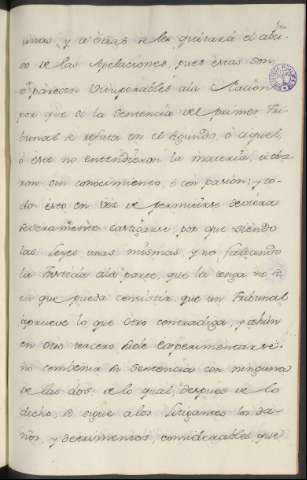 unas, y a otras se les quitará el abu-
so de las Apelaciones, pues estas son
ó parecen vituperables á la Nacion
por que si la Sentencia del primer Tri-
bunal se refuta en el segundo, ó aquel,
ó este no entendieron la materia, u obra-
ron sin conocimiento, ó con pasion; y to-
do esto en vez de permitirse deviera
severamente castigarse, por que siendo
las Leyes unas mismas, y no faltando
la Justicia á la parte, que la tenga no se
en que pueda consistir que un Tribunal
aprueve lo que otro contradiga, y ahún
en otro tercero suele experimentarse
no combenir la Sentencia con ninguna
de las dos: de lo qual, despues de lo
dicho, se sigue a los Litigantes los da-
ños, y detrimentos, considerables que